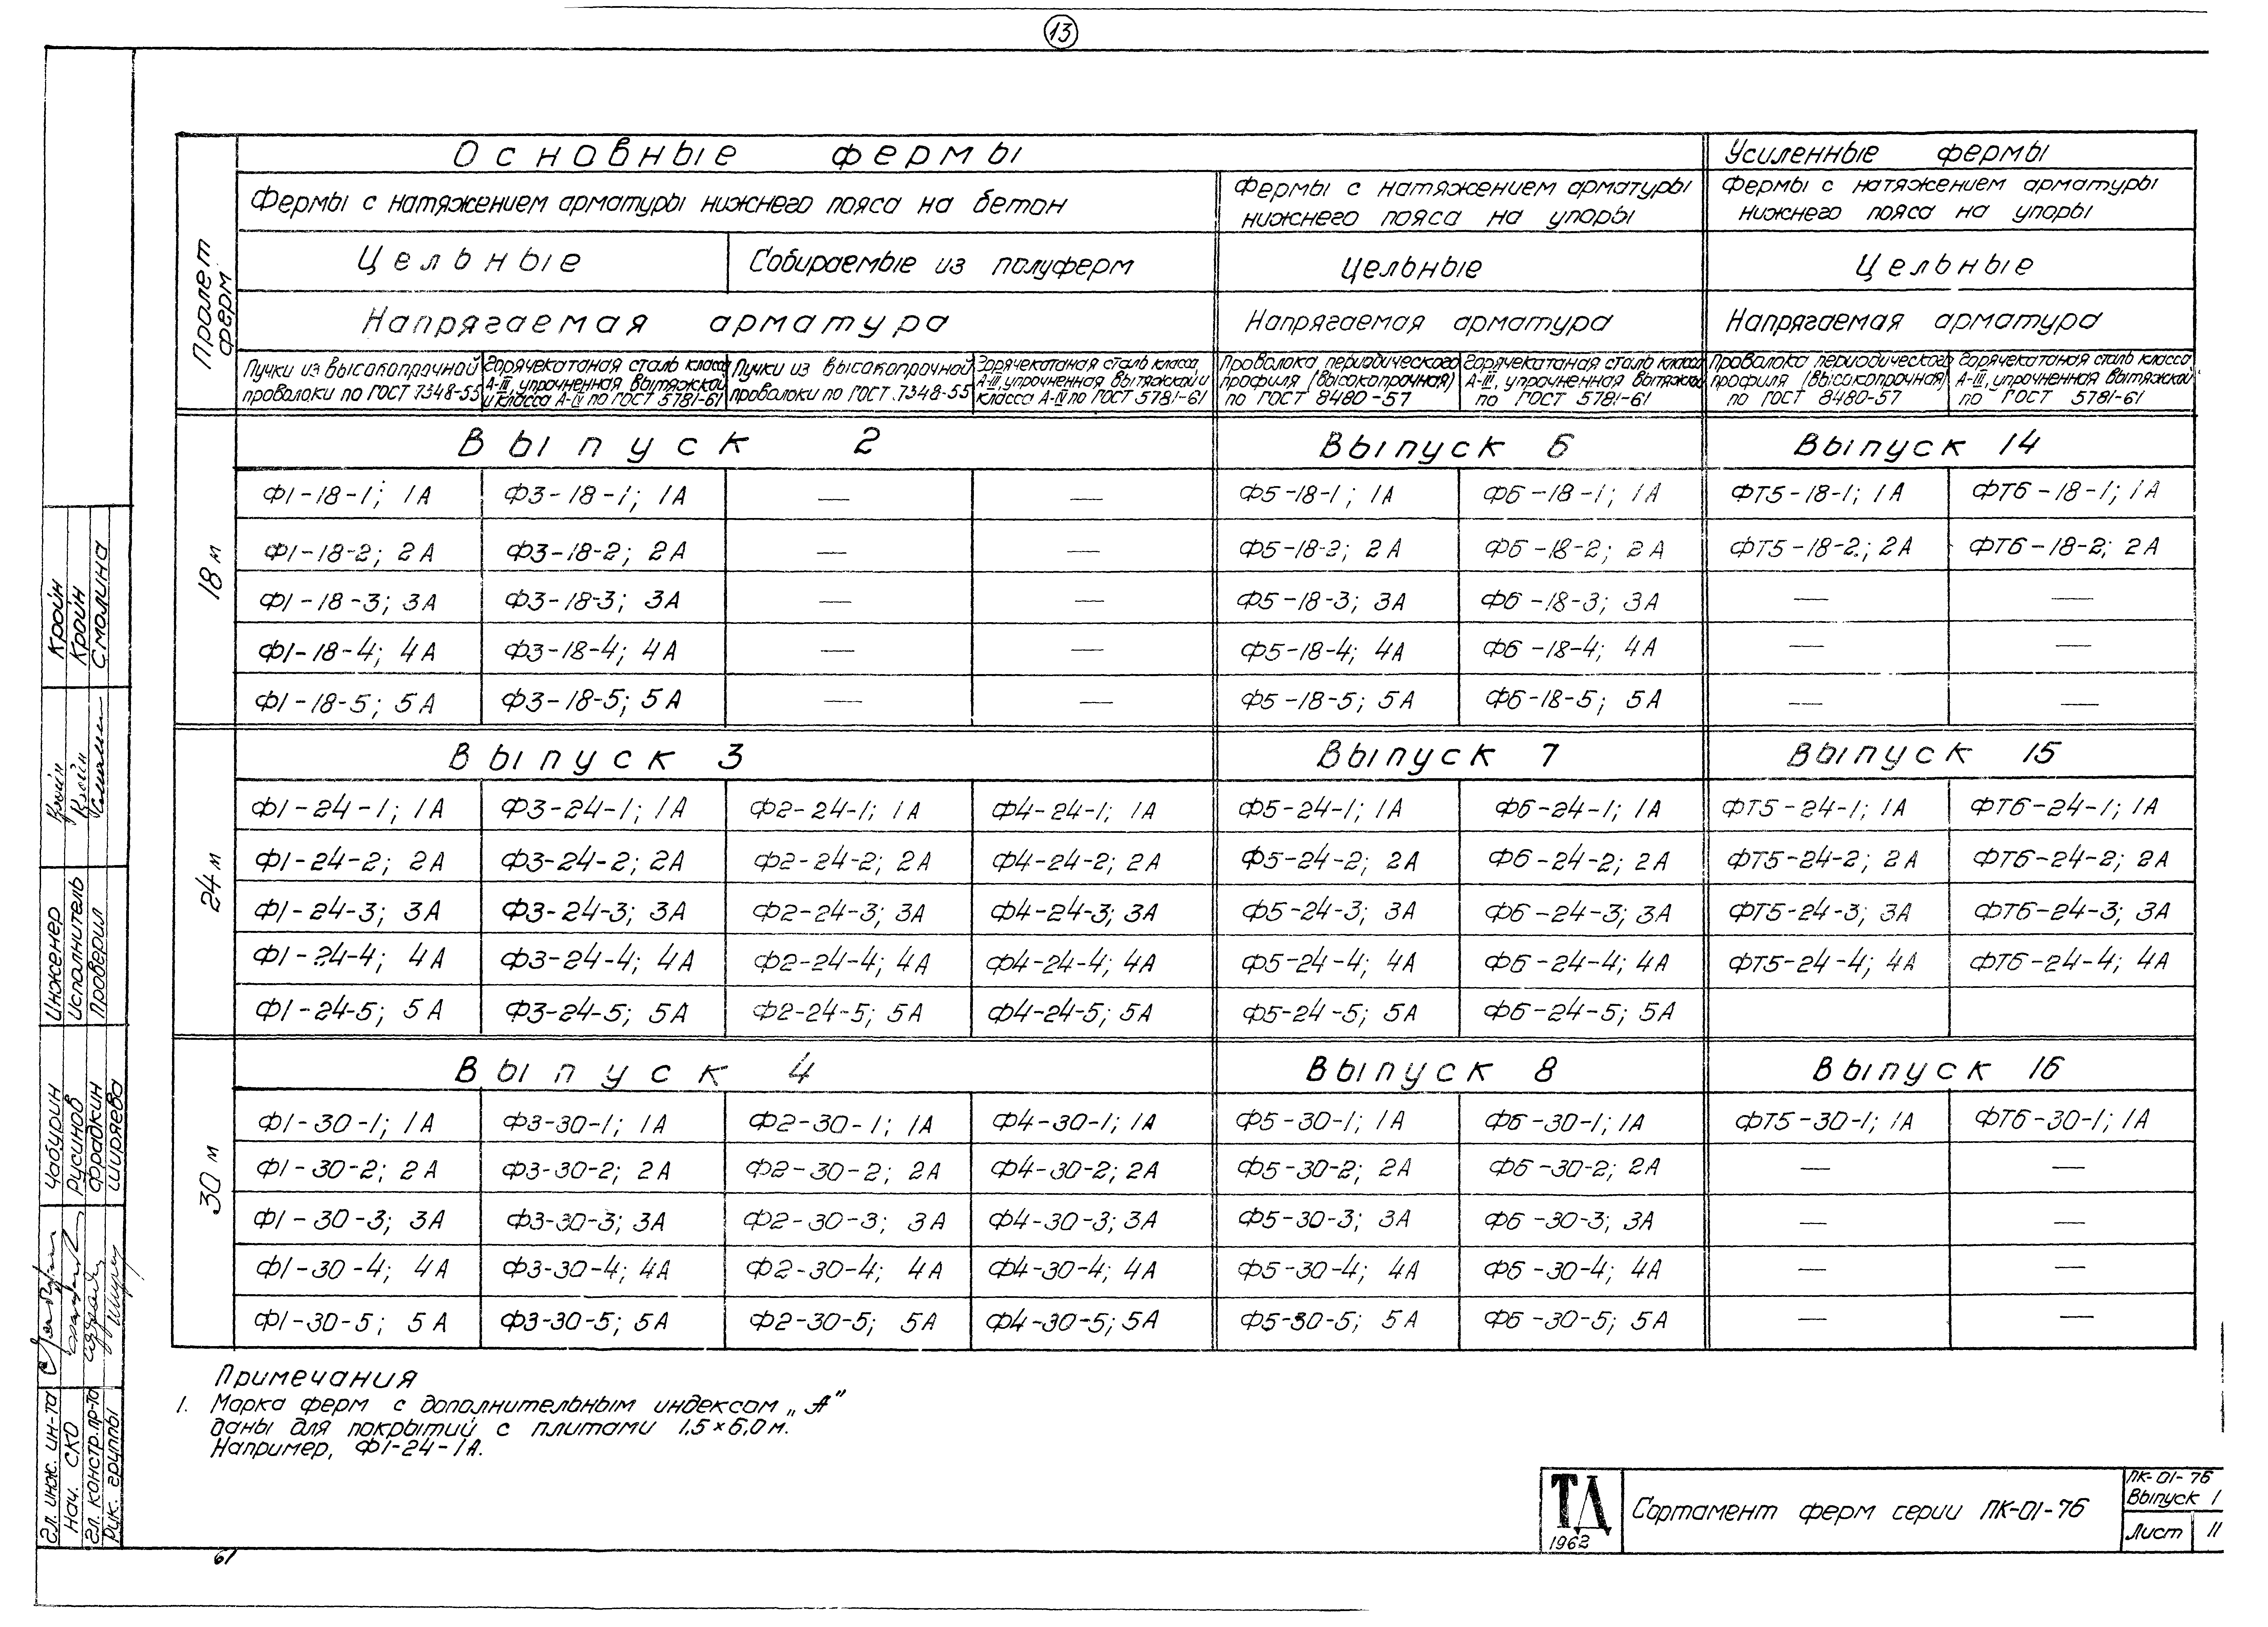 13
Основные фермы
Усиленные фермы
Пролет ферм
Фермы с натяжением арматуры нижнего пояса на бетон
Фермы с натяжением арматуры
нижнего пояса на упоры
Фермы с натяжением арматуры
нижнего пояса на упоры
Цельные
Собираемые из полуферм
Цельные
Цельные
Напрягаемая арматура
Напрягаемая арматура
Напрягаемая арматура
Пучки из высокопрочной
проволоки по ГОСТ 7348-55
Горячекатаная сталь класса
А-III, упрочненная вытяжкой
и класса А-IV по ГОСТ 5781-61
Пучки из высокопрочной
проволоки по ГОСТ 7348-55
Горячекатаная сталь класса
А-III, упрочненная вытяжкой и
класса А-IV по ГОСТ 5781-61
Проволока периодического
профиля (высокопрочная)
по ГОСТ 8480-57
Горячекатаная сталь класса
А-III, упрочненная вытяжкой
по ГОСТ 5781-61
Проволока периодического
профиля (высокопрочная)
по ГОСТ 8480-57
Горячекатаная сталь класса
А-III, упрочненная вытяжкой
по ГОСТ 5781-61
18 м
Выпуск 2 Выпуск 6 Выпуск 14
Ф1-18-1; 1А Ф3-18-1; 1А — — Ф5-18-1; 1А Ф6-18-1; 1А ФТ5-18-1; 1А ФТ6-18-1; 1А
Ф1-18-2; 2А Ф3-18-2; 2А — — Ф5-18-2; 2А Ф6-18-2; 2А ФТ5-18-2; 2А ФТ6-18-2; 2А
Ф1-18-3; 3А Ф3-18-3; 3А — — Ф5-18-3; 3А Ф6-18-3; 3А — —
Ф1-18-4; 4А Ф3-18-4; 4А — — Ф5-18-4; 4А Ф6-18-4; 4А — —
Ф1-18-5; 5А Ф3-18-5; 5А — — Ф5-18-5; 5А Ф6-18-5; 5А — —
24 м
Выпуск 3 Выпуск 7 Выпуск 15
Ф1-24-1; 1А Ф3-24-1; 1А Ф2-24-1; 1А Ф4-24-1; 1А Ф5-24-1; 1А Ф6-24-1; 1А ФТ5-24-1; 1А ФТ6-24-1; 1А
Ф1-24-2; 2А Ф3-24-2; 2А Ф2-24-2; 2А Ф4-24-2; 2А Ф5-24-2; 2А Ф6-24-2; 2А ФТ5-24-2; 2А ФТ6-24-2; 2А
Ф1-24-3; 3А Ф3-24-3; 3А Ф2-24-3; 3А Ф4-24-3; 3А Ф5-24-3; 3А Ф6-24-3; 3А ФТ5-24-3; 3А ФТ6-24-3; 3А
Ф1-24-4; 4А Ф3-24-4; 4А Ф2-24-4; 4А Ф4-24-4; 4А Ф5-24-4; 4А Ф6-24-4; 4А ФТ5-24-4; 4А ФТ6-24-4; 4А
Ф1-24-5; 5А Ф3-24-5; 5А Ф2-24-5; 5А Ф4-24-5; 5А Ф5-24-5; 5А Ф6-24-5; 5А
30 м
Выпуск 4 Выпуск 8 Выпуск 16
Ф1-30-1; 1А Ф3-30-1; 1А Ф2-30-1; 1А Ф4-30-1; 1А Ф5-30-1; 1А Ф6-30-1; 1А ФТ5-30-1; 1А ФТ6-30-1; 1А
Ф1-30-2; 2А Ф3-30-2; 2А Ф2-30-2; 2А Ф4-30-2; 2А Ф5-30-2; 2А Ф6-30-2; 2А — —
Ф1-30-3; 3А Ф3-30-3; 3А Ф2-30-3; 3А Ф4-30-3; 3А Ф5-30-3; 3А Ф6-30-3; 3А — —
Ф1-30-4; 4А Ф3-30-4; 4А Ф2-30-4; 4А Ф4-30-4; 4А Ф5-30-4; 4А Ф6-30-4; 4А — —
Ф1-30-5; 5А Ф3-30-5; 5А Ф2-30-5; 5А Ф4-30-5; 5А Ф5-30-5; 5А Ф6-30-5; 5А — —
Примечания
1. Марка ферм с дополнительным индексом „А"
даны для покрытий с плитами 1,5×6,0 м.
Например, Ф1-24-1А.
ТД
1962
Сортамент ферм серии ПК-01-76
ПК-01-76
Выпуск 1
Лист 11
61
Гл. инж. ин-та Чабурин Инженер Кройн
Нач. СКО Русинов Исполнитель Кройн
Гл. констр. пр-та Фрадкин Проверил Смолина
Рук. группы Ширяева